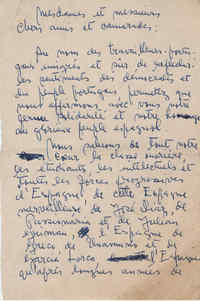 Mesdames et messieurs
Chers amis et camarades:
Au nom des travailleurs portu-
gais émigrés et sûr de
les sentiments des démocrates et
du peuple portugais, permettez que
nous affirmons avec vous notre
ferme solidarité et notre hommage
au glorieux peuple espagnol.
Nous saluons de tout notre
cœur la classe ouvrière,
les étudiants, les intellectuels et
toutes les forces progressives
d'Espagne, de cette Espagne
merveilleuse de José Diaz, de
Passionaria et de Julian
Grimau, l'Espagne de
Greco de Unamuno et de
Garcia Lorca l'Espagne
qu'après longues années de